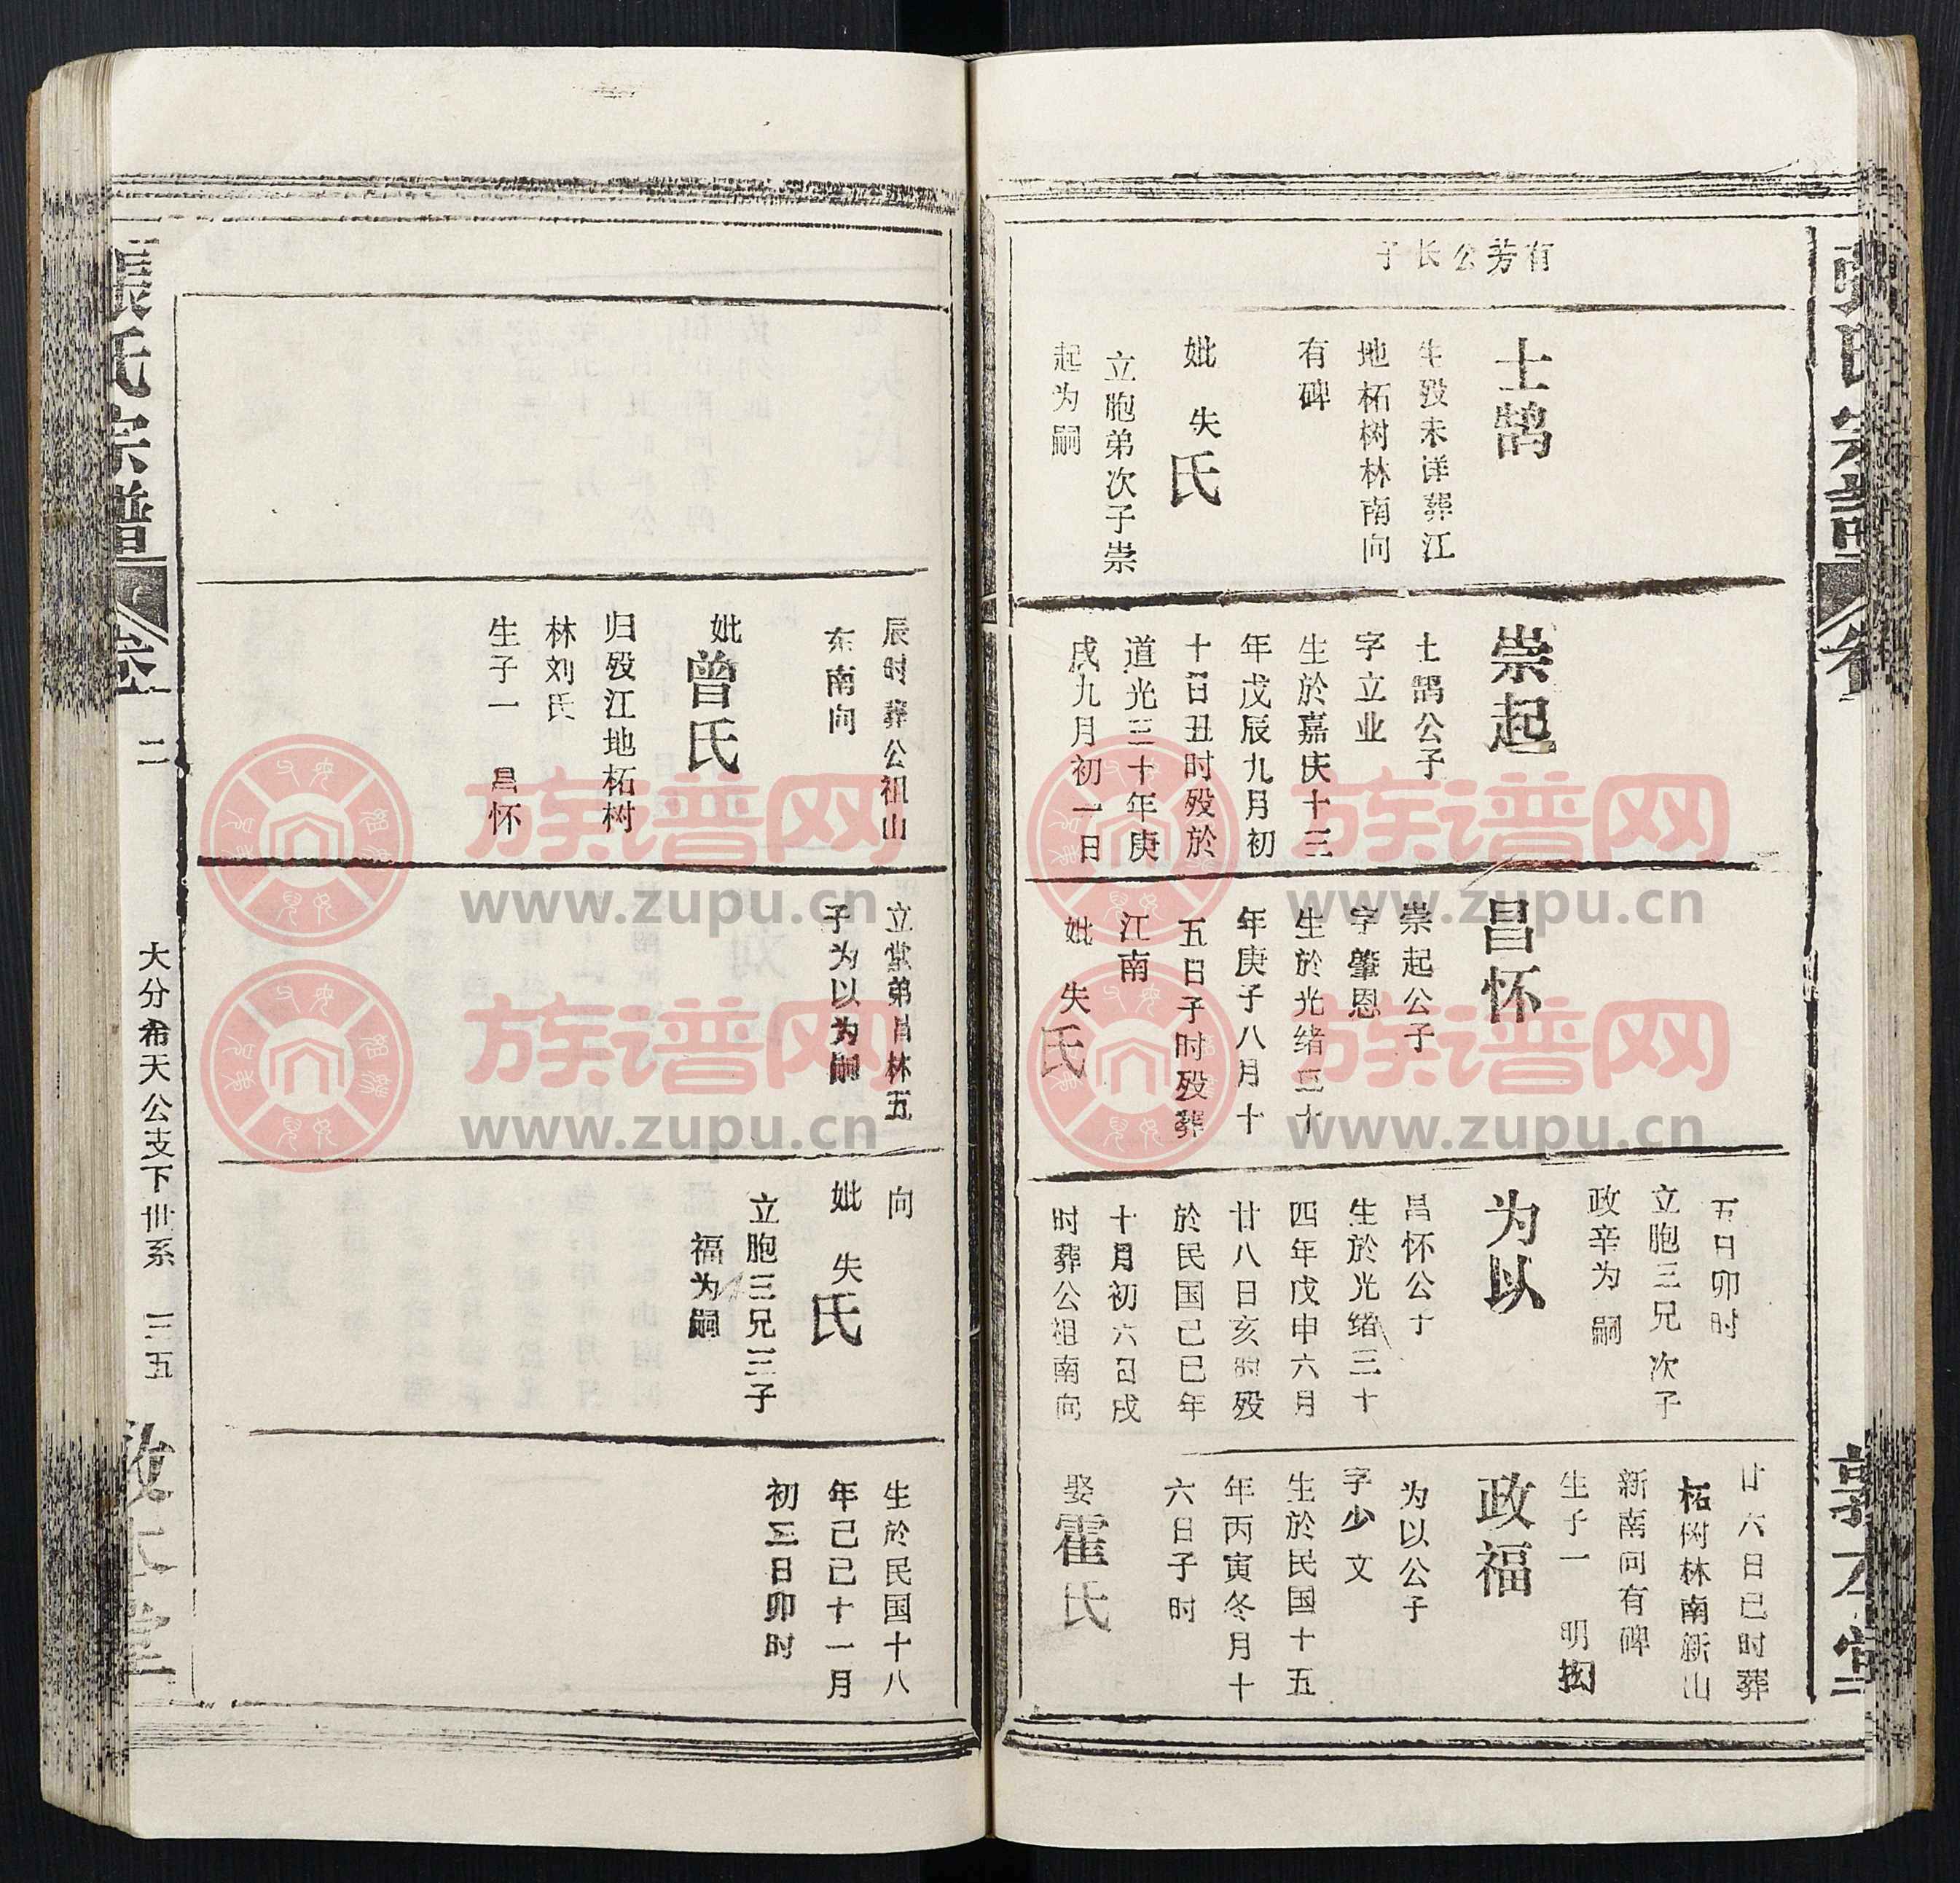 有芳公长子
士鹄
生殁未详葬江
地柘树林南向
有碑
妣 失氏
立胞弟次子崇
起为嗣
崇起
士鹄公子
字立业
生於嘉庆十三
年戊辰九月初
十日丑时殁於
道光三十年庚
戌九月初一日
昌怀
崇起公子
字肇恩
生於光绪三十
年庚子八月十
五日子时殁葬
江南
妣 失氏
五日卯时
立胞三兄次子
政辛为嗣
为以
昌怀公子
生於光绪三十
四年戊申六月
廿八日亥时殁
於民国己巳年
十月初六日戌
时葬公祖南向
廿六日巳时葬
柘树林南新山
新南向有碑
生子一 明
政福
为以公子
字少文
生於民国十五
年丙寅冬月十
六日子时
娶霍氏
张氏宗谱
敦本堂
辰时葬公祖山
东南向
妣曾氏
归殁江地柘树
林刘氏
生子一 昌怀
立堂弟昌林五
子为以为嗣
向
妣 失氏
立胞三兄三子
福为嗣
生於民国十八
年己巳十一月
初三日卯时
張氏宗譜
卷二
大分希天公支下世系 三五
敦本堂
族谱网
www.zupu.cn
族谱网
www.zupu.cn
族谱网
www.zupu.cn
族谱网
www.zupu.cn